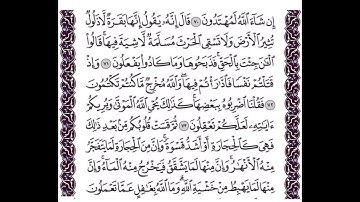 إِن شَآءَ ٱللَّهُ لَمُهْتَدُونَ ٧٠ قَالَ إِنَّهُۥ يَقُولُ إِنَّهَا بَقَرَةٌ لَّا ذَلُولٌ
تُثِيرُ ٱلْأَرْضَ وَلَا تَسْقِى ٱلْحَرْثَ مُسَلَّمَةٌ لَّا شِيَةَ فِيهَا ۚ قَالُوا۟
ٱلْـَٔـٰنَ جِئْتَ بِٱلْحَقِّ ۚ فَذَبَحُوهَا وَمَا كَادُوا۟ يَفْعَلُونَ ٧١ وَإِذْ
قَتَلْتُمْ نَفْسًا فَٱدَّٰرَْٰٔتُمْ فِيهَا ۖ وَٱللَّهُ مُخْرِجٌ مَّا كُنتُمْ تَكْتُمُونَ
٧٢ فَقُلْنَا ٱضْرِبُوهُ بِبَعْضِهَا ۚ كَذَٰلِكَ يُحْىِ ٱللَّهُ ٱلْمَوْتَىٰ وَيُرِيكُمْ
ءَايَـٰتِهِۦ لَعَلَّكُمْ تَعْقِلُونَ ٧٣ ثُمَّ قَسَتْ قُلُوبُكُم مِّنۢ بَعْدِ ذَٰلِكَ
فَهِىَ كَٱلْحِجَارَةِ أَوْ أَشَدُّ قَسْوَةً ۚ وَإِنَّ مِنَ ٱلْحِجَارَةِ لَمَا يَتَفَجَّرُ
مِنْهُ ٱلْأَنْهَـٰرُ ۚ وَإِنَّ مِنْهَا لَمَا يَشَّقَّقُ فَيَخْرُجُ مِنْهُ ٱلْمَآءُ ۚ وَإِنَّ
مِنْهَا لَمَا يَهْبِطُ مِنْ خَشْيَةِ ٱللَّهِ ۗ وَمَا ٱللَّهُ بِغَـٰفِلٍ عَمَّا تَعْمَلُونَ